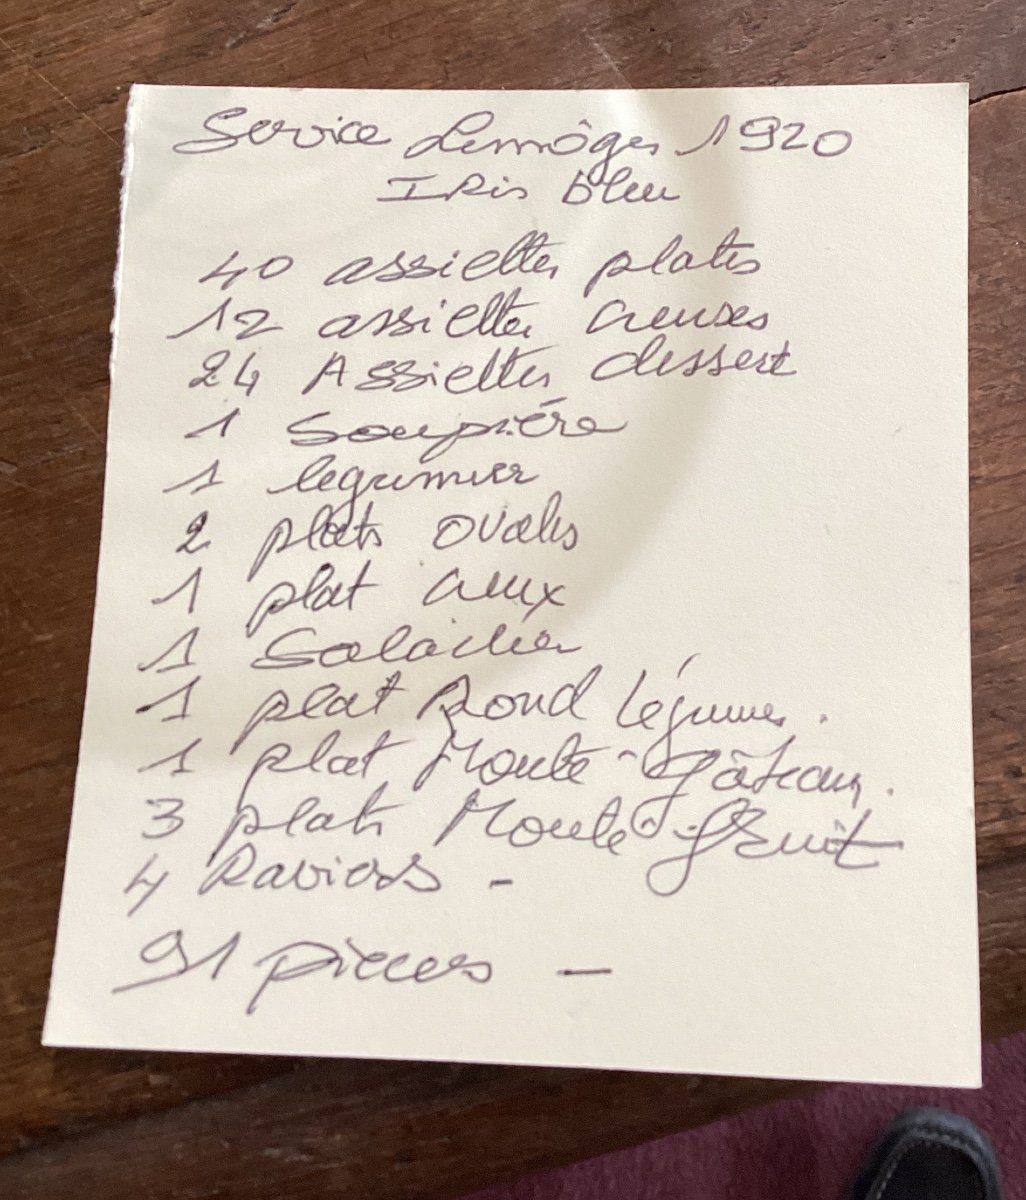 Service Limôges 1920
IRis bleu
40 assiettes plates
12 assiettes creuses
24 Assiettes dessert
1 Soupiére
1 legumier
2 plats ovales
1 plat creux
1 Saladier
1 plat Rond légumes.
1 plat Monte-gâteaux.
3 plats Monte-fruit
4 Raviers -
91 pieces -